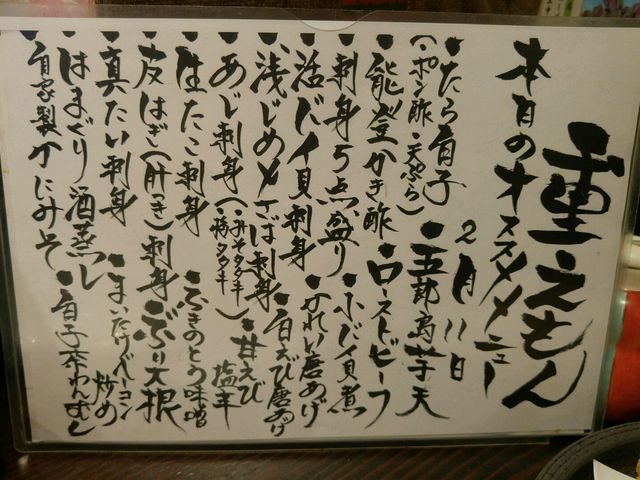 重えもん
本日のオススメメニュー
2月11日
・たら白子
(・ポン酢・天ぷら)
・五郎島芋天
・能登かき酢
・ローストビーフ
・刺身5点盛り
・小バイ貝煮
・活バイ貝刺身
・かれい唐あげ
・浅じめ〆さば刺身
・白えび唐あげ
・あじ刺身(・みそタタキ・タタキ)
・甘えび塩辛
・生たこ刺身
・ふきのとう味噌
・皮はぎ(肝つき)刺身
ぶり大根
・真たい刺身
・まいたけベーコン炒め
・はまぐり酒蒸し
・自家製かにみそ
・白子茶わんむし